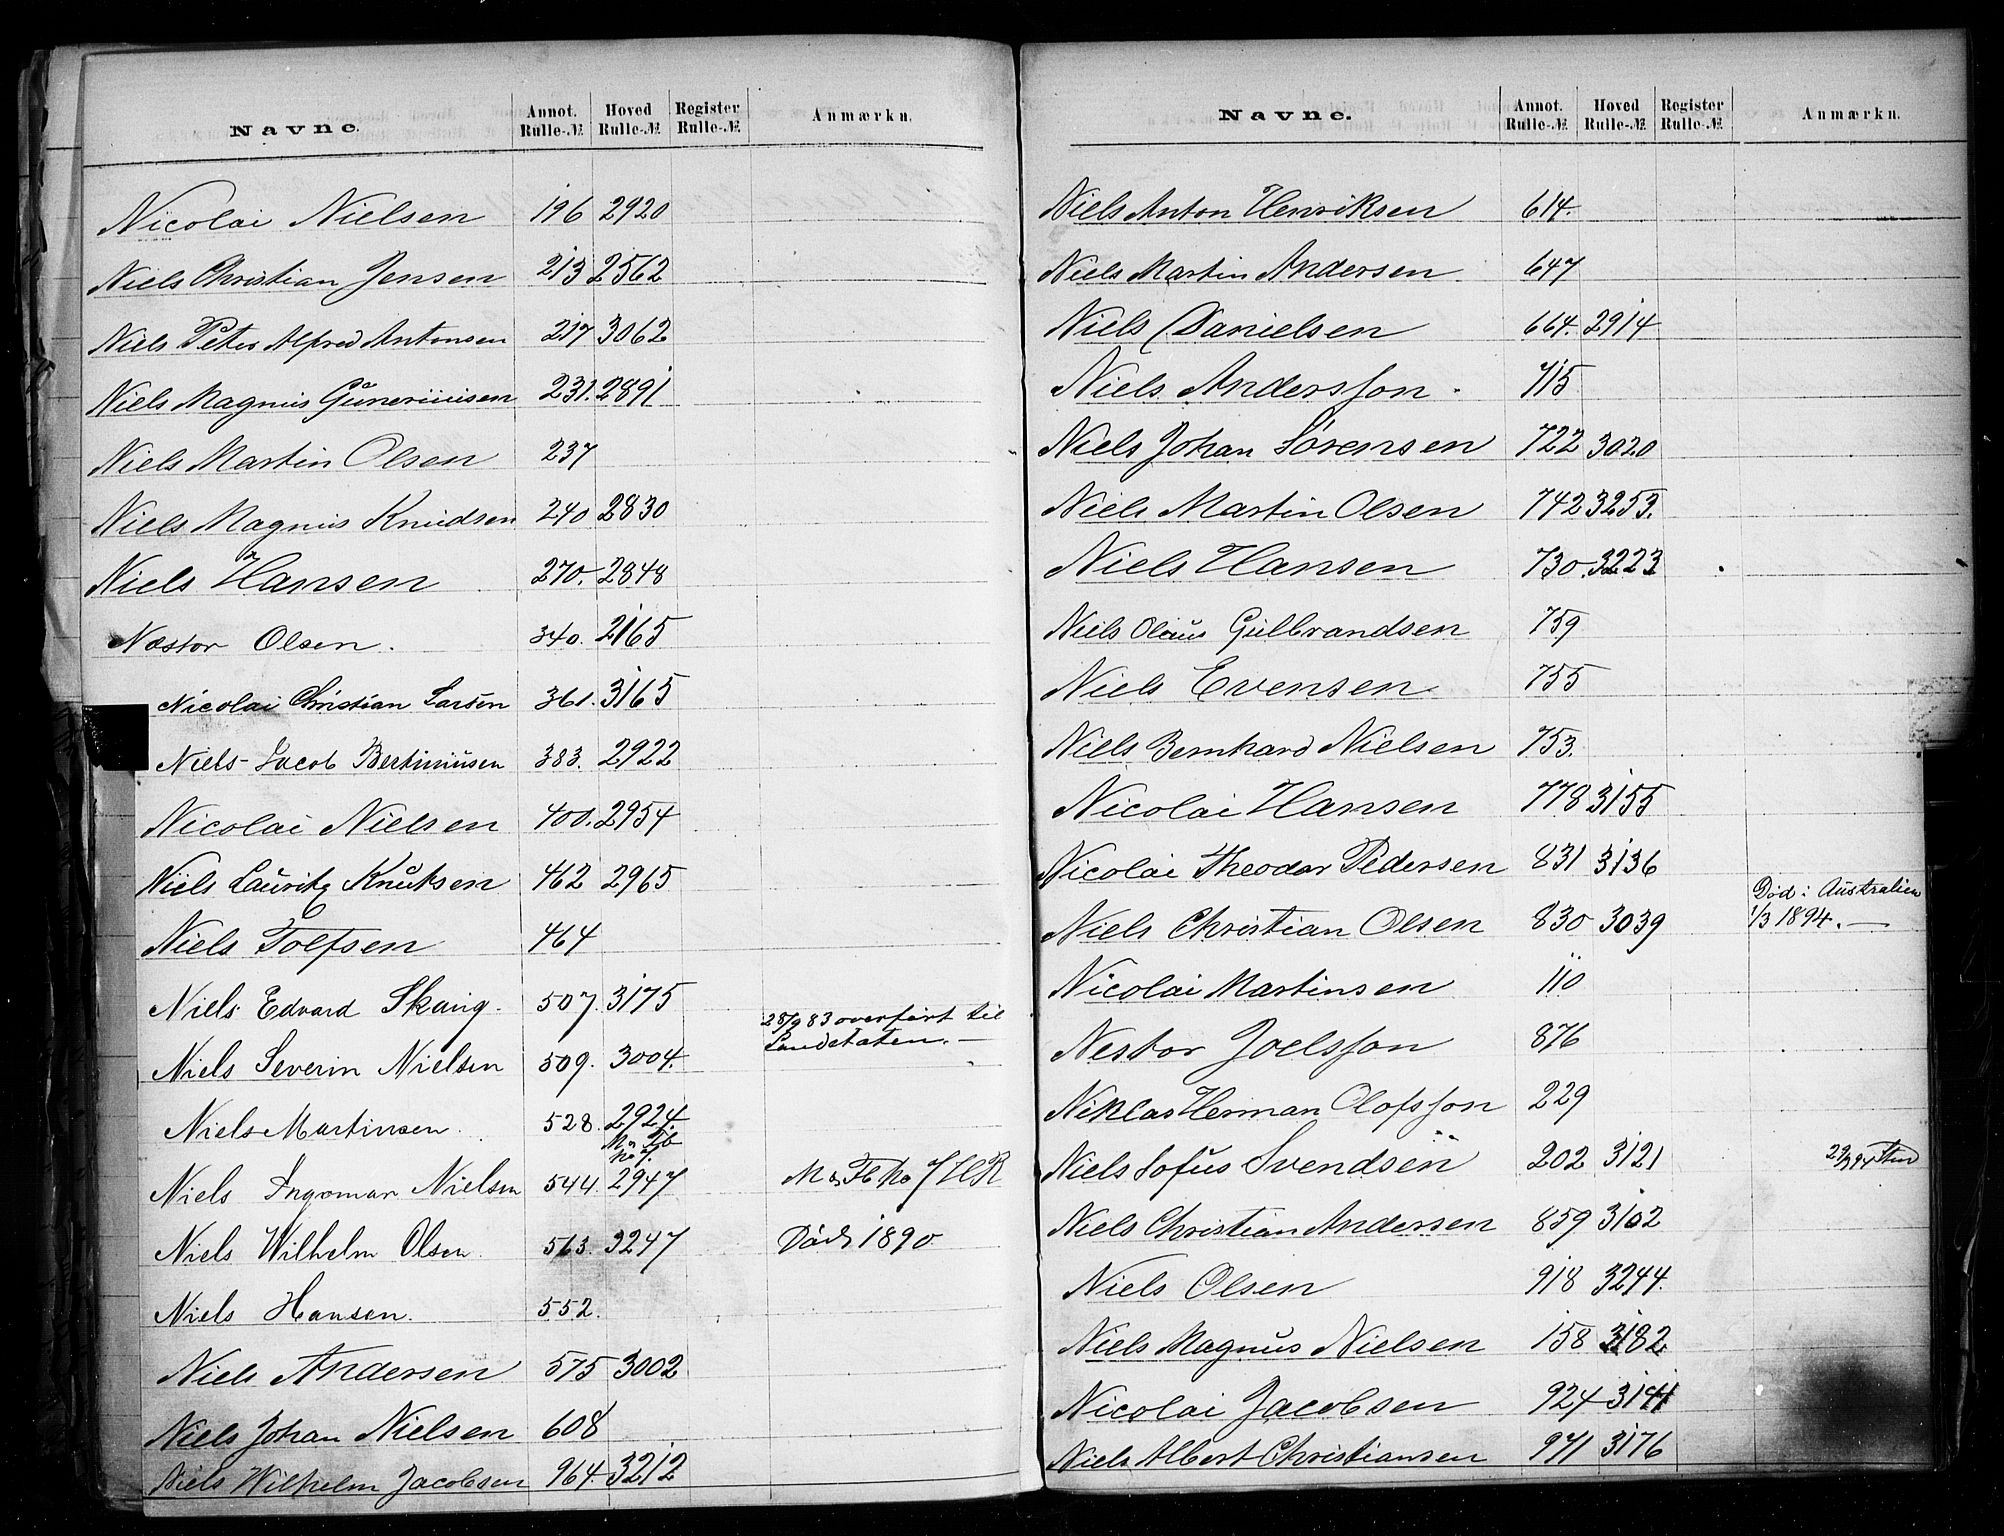 Navne. Annot. Rulle-№ Hoved Rulle-№ Register Rulle-№ Anmærkn.
Nicolai Nielsen 196 2920
Niels Christian Jensen 213 2562
Niels Peter Alfred Antonsen 217 3062
Niels Magnus Guneriusen 231. 2891
Niels Martin Olsen 237
Niels Magnus Knudsen 240 2830
Niels Hansen 270. 2848
Nestor Olsen. 340. 2165
Nicolai Christian Larsen 361. 3165
Niels Jacob Bertiniusen 383. 2922
Nicolai Nielsen 400. 2954
Niels Lauritz Knutsen 462 2965
Niels Tolfsen 464
Niels Edvard Skaug. 507. 3175
28/9 83 overført til
Landetaten. —
Niels Severin Nielsen 509. 3004.
Niels Martinsen. 528. 2924.
Niels Ingomar Nielsen 544. 2947
Niels Wilhelm Olsen. 513. 3247 Död 1890
Niels Hansen. 552.
Niels Andersen 575 3002
Niels Johan Nielsen 608
Niels Wilhelm Jacobsen 964. 3212
Navne. Annot. Rulle-№ Hoved Rulle-№ Register Rulle-№ Anmærkn.
Niels Anton Henriksen 614.
Niels Martin Andersen 647
Niels Danielsen 664. 2914
Niels Andersson. 715
Niels Johan Sørensen 722 3020
Niels Martin Olsen 742 3253.
Niels Hansen 730. 3223
Niels Olaus Gulbrandsen 759
Niels Evensen 755
Niels Bernhard Nielsen 753.
Nicolai Hansen 778 3155
Nicolai Theodor Pedersen 831 3136
Niels Christian Olsen 830 3039 Død i Australien
1/3 1894. —
Nicolai Martinsen 110
Nestor Joelsson 876
Niklas Herman Olofsson 229
Niels Sofus Svendsen 202 3121
Niels Christian Andersen 859 3102
Niels Olsen 918 3244.
Niels Magnus Nielsen 158 3182
Nicolai Jacobsen 924 3141
Niels Albert Christiansen 971 3176